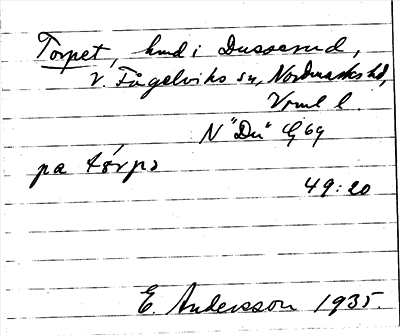 Torpet, hmd i Dusserud,
V. Fågelviks sn, Nordmarks hd,
Vrml l.
N "Du" G 69
pa tórpə
49:20
E. Andersson 1935.